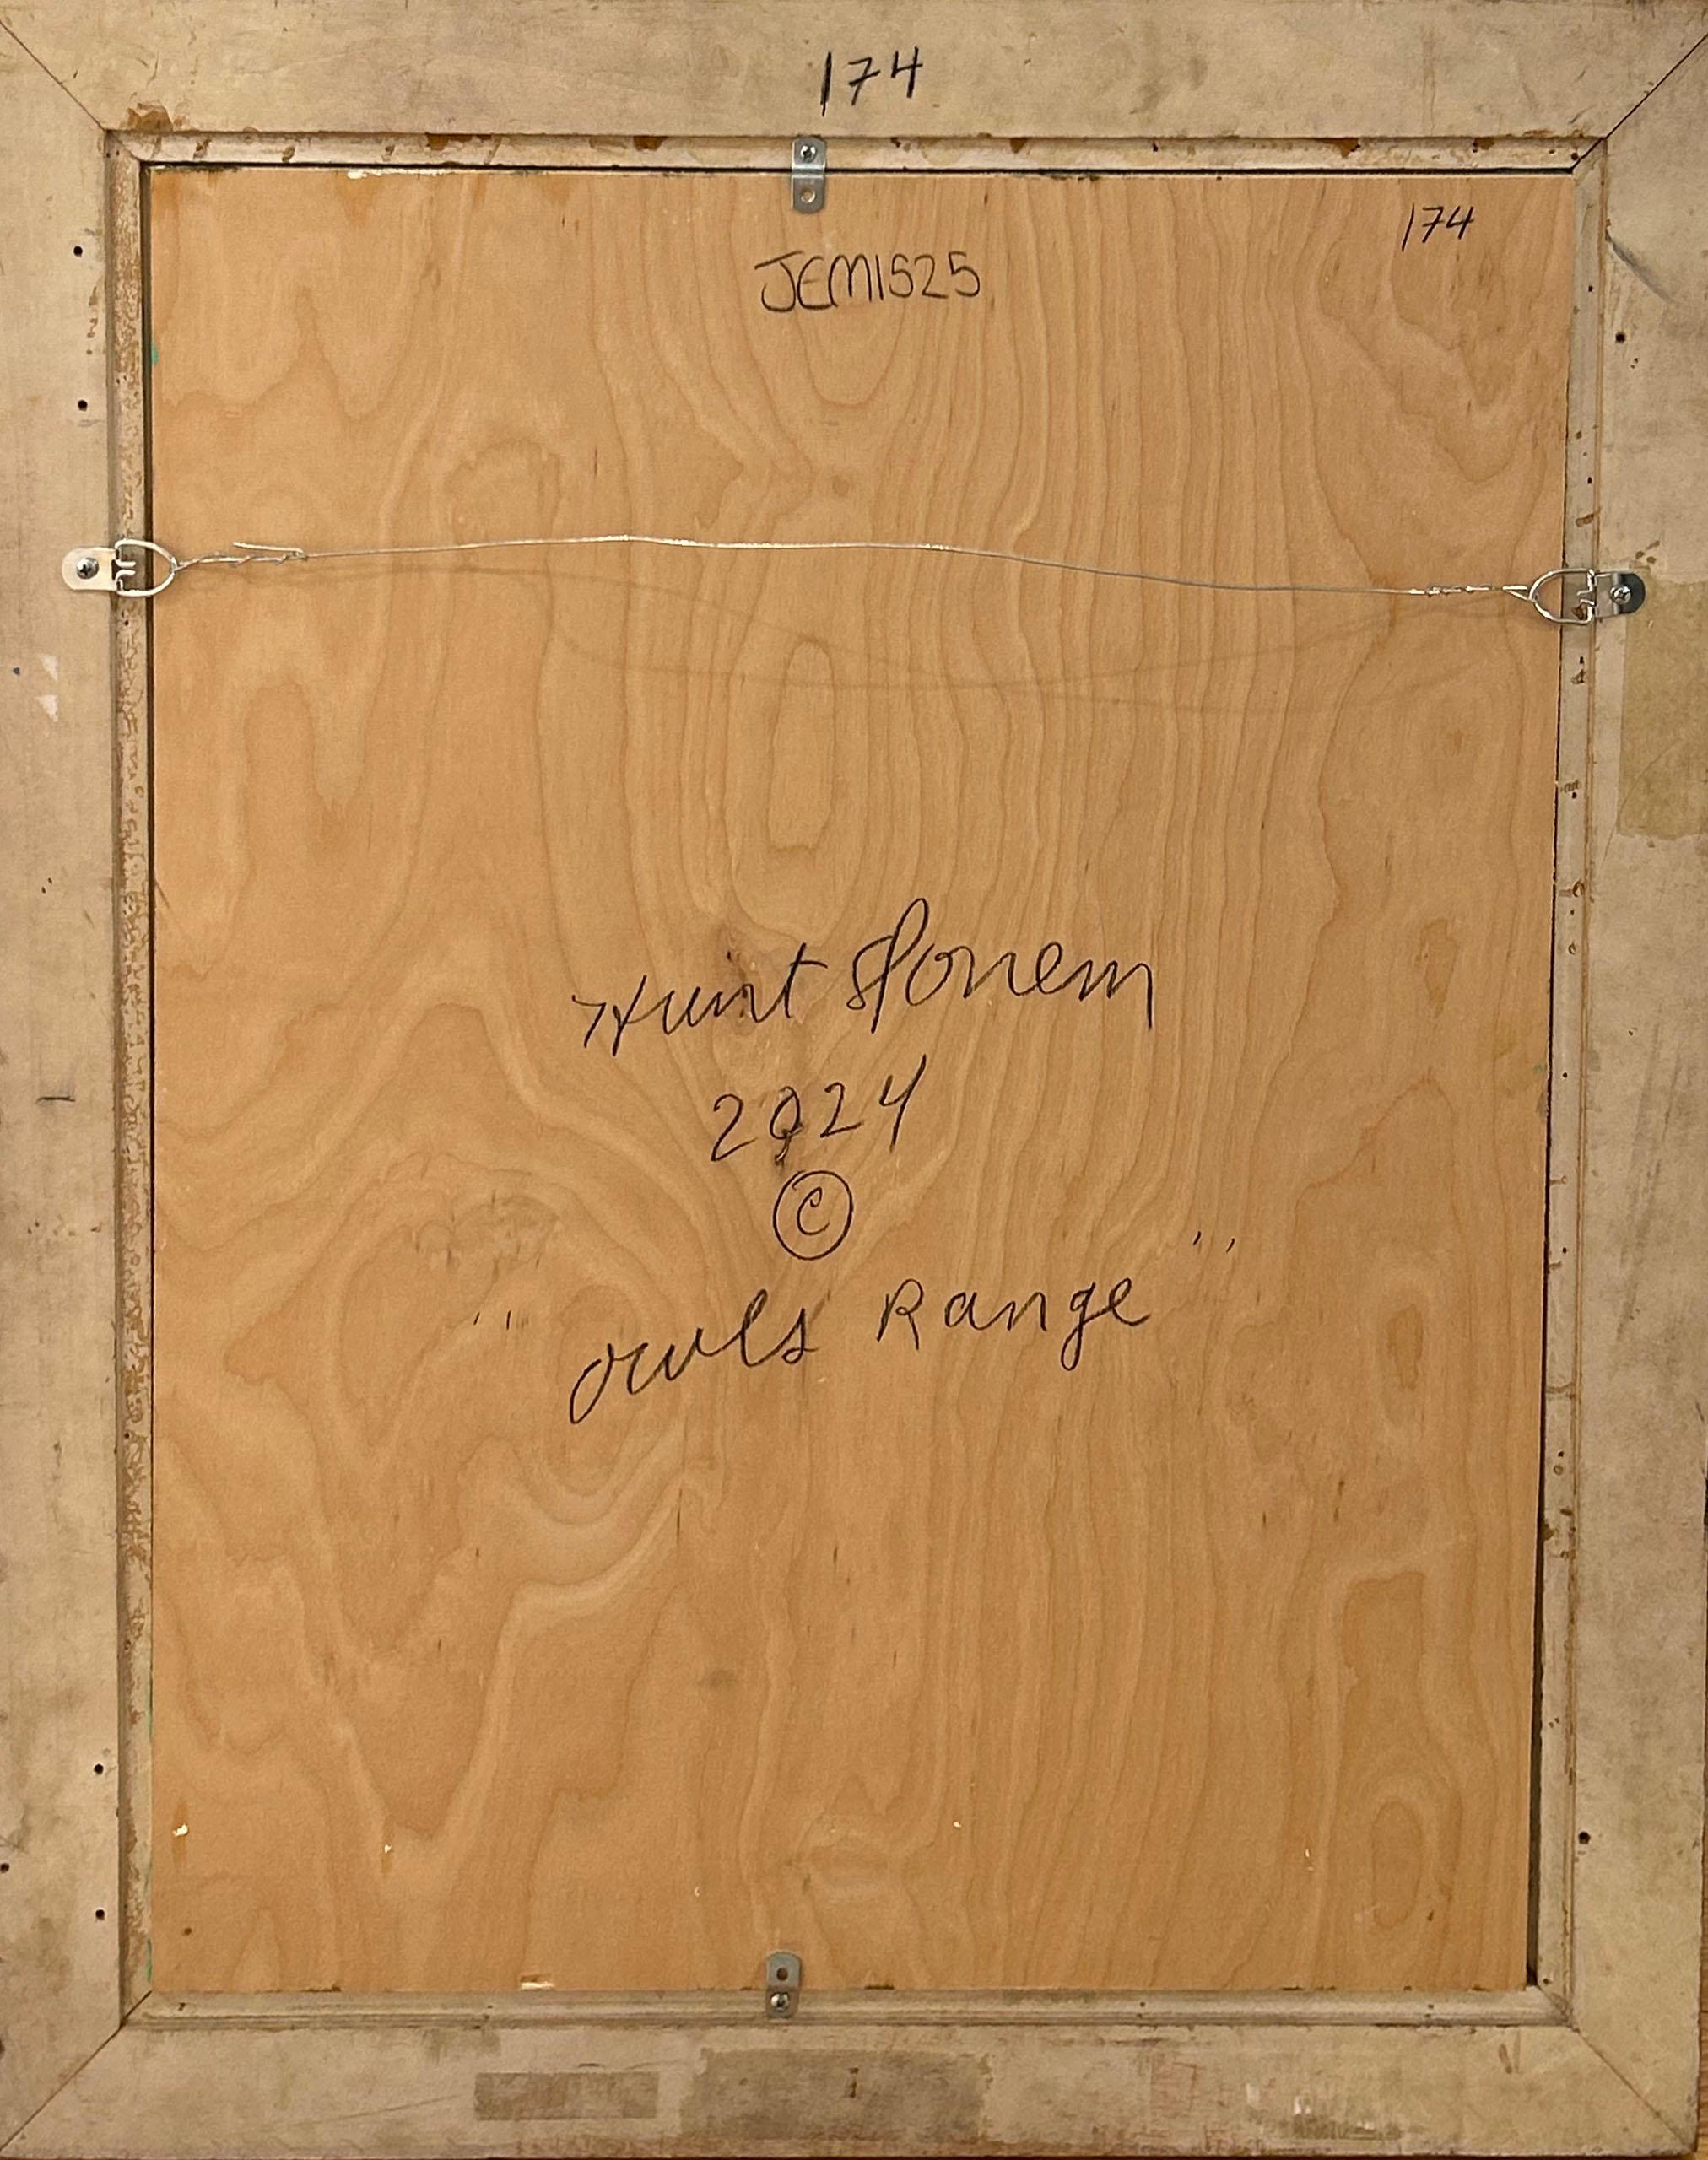 174
174
JEM1525
Hunt Slonem
2024
©
"owls Range"